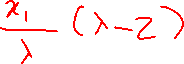 \frac{x_1}{\lambda} (\lambda - 2)